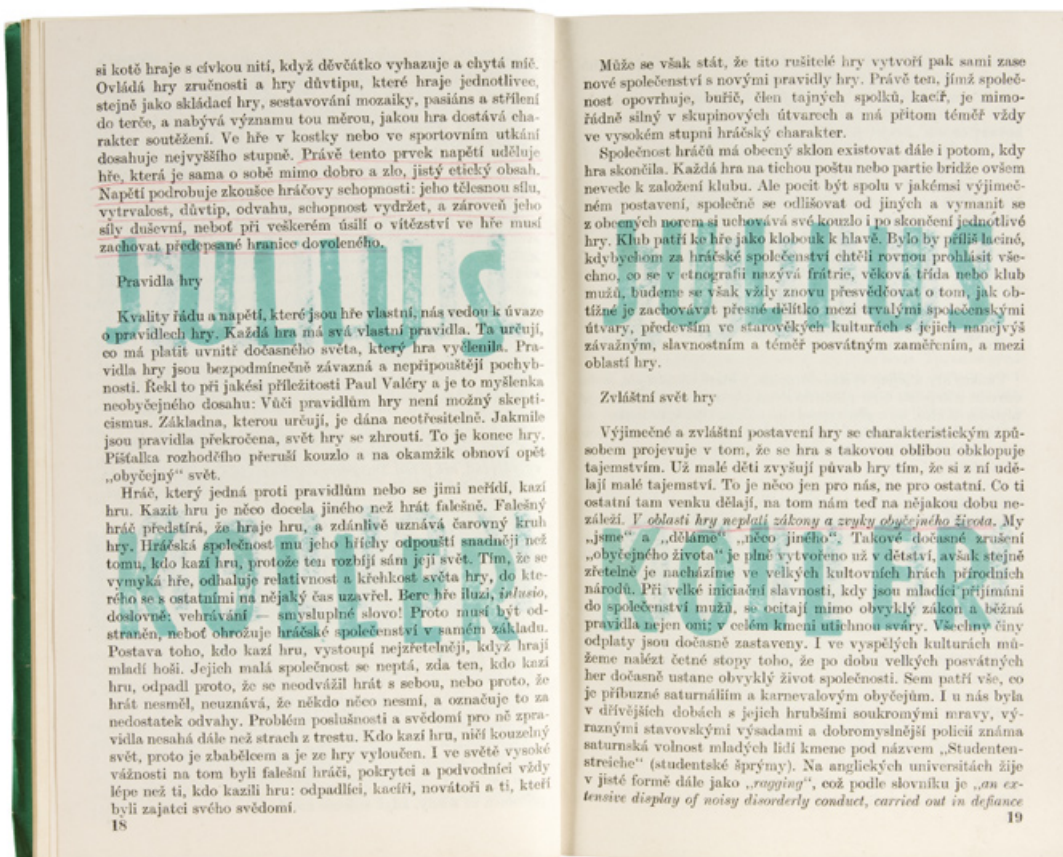 si kotě hraje s cívkou nití, když děvčátko vyhazuje a chytá míč.
Ovládá hry zručnosti a hry důvtipu, které hraje jednotlivec,
stejně jako skládací hry, sestavování mozaiky, pasiáns a střílení
do terče, a nabývá významu tou měrou, jakou hra dostává cha-
rakter soutěžení. Ve hře v kostky nebo ve sportovním utkání
dosahuje nejvyššího stupně. Právě tento prvek napětí uděluje
hře, která je sama o sobě mimo dobro a zlo, jistý etický obsah.
Napětí podrobuje zkoušce hráčovy schopnosti: jeho tělesnou sílu,
vytrvalost, důvtip, odvahu, schopnost vydržet, a zároveň jeho
síly duševní, neboť při veškerém úsilí o vítězství ve hře musí
zachovat předepsané hranice dovoleného.
JULIUS
Pravidla hry
Kvality řádu a napětí, které jsou hře vlastní, nás vedou k úvaze
o pravidlech hry. Každá hra má svá vlastní pravidla. Ta určují,
co má platit uvnitř dočasného světa, který hra vyčlenila. Pra-
vidla hry jsou bezpodmínečně závazná a nepřipouštějí pochyb-
nosti. Řekl to při jakési příležitosti Paul Valéry a je to myšlenka
neobyčejného dosahu: Vůči pravidlům hry není možný skepti-
cismus. Základna, kterou určují, je dána neotřesitelně. Jakmile
jsou pravidla překročena, svět hry se zhroutí. To je konec hry.
Píšťalka rozhodčího přeruší kouzlo a na okamžik obnoví opět
„obyčejný“ svět.
Hráč, který jedná proti pravidlům nebo se jimi neřídí, kazí
hru. Kazit hru je něco docela jiného než hrát falešně. Falešný
hráč předstírá, že hraje hru, a zdánlivě uznává čarovný kruh
hry. Hráčská společnost mu jeho hříchy odpouští snadněji než
tomu, kdo kazí hru, protože ten rozbíjí sám její svět. Tím, že se
vymyká hře, odhaluje relativnost a křehkost světa hry, do kte-
rého se s ostatními na nějaký čas uzavřel. Bere hře iluzi, inlusio,
doslovně: vehrávání – smysluplné slovo! Proto musí být od-
straněn, neboť ohrožuje hráčské společenství v samém základu.
KOTLER
Postava toho, kdo kazí hru, vystoupí nejzřetelněji, když hrají
mladí hoši. Jejich malá společnost se neptá, zda ten, kdo kazí
hru, odpadl proto, že se neodvážil hrát s sebou, nebo proto, že
hrát nesměl, neuznává, že někdo něco nesmí, a označuje to za
nedostatek odvahy. Problém poslušnosti a svědomí pro ně zpra-
vidla nesahá dále než strach z trestu. Kdo kazí hru, ničí kouzelný
svět, proto je zbabělcem a je ze hry vyloučen. I ve světě vysoké
vážnosti na tom byli falešní hráči, pokrytci a podvodníci vždy
lépe než ti, kdo kazili hru: odpadlíci, kacíři, novátoři a ti, kteří
byli zajatci svého svědomí.
18
Může se však stát, že tito rušitelé hry vytvoří pak sami zase
nové společenství s novými pravidly hry. Právě ten, jímž společ-
nost opovrhuje, buřič, člen tajných spolků, kacíř, je mimo-
řádně silný v skupinových útvarech a má přitom téměř vždy
ve vysokém stupni hráčský charakter.
Společnost hráčů má obecný sklon existovat dále i potom, kdy
hra skončila. Každá hra na tichou poštu nebo partie bridže ovšem
nevede k založení klubu. Ale pocit být spolu v jakémsi výjimeč-
ném postavení, společně se odlišovat od jiných a vymanit se
z obecných norem si uchovává své kouzlo i po skončení jednotlivé
hry. Klub patří ke hře jako klobouk k hlavě. Bylo by příliš laciné,
kdybychom za hráčské společenství chtěli rovnou prohlásit vše-
chno, co se v etnografii nazývá frátrie, věková třída nebo klub
mužů, budeme se však vždy znovu přesvědčovat o tom, jak ob-
tížné je zachovávat přesné dělítko mezi trvalými společenskými
útvary, především ve starověkých kulturách s jejich nanejvýš
závažným, slavnostním a téměř posvátným zaměřením, a mezi
oblastí hry.
JULIUS
Zvláštní svět hry
Výjimečné a zvláštní postavení hry se charakteristickým způ-
sobem projevuje v tom, že se hra s takovou oblibou obklopuje
tajemstvím. Už malé děti zvyšují půvab hry tím, že si z ní udě-
lají malé tajemství. To je něco jen pro nás, ne pro ostatní. Co ti
ostatní tam venku dělají, na tom nám teď na nějakou dobu ne-
záleží. V oblasti hry neplatí zákony a zvyky obyčejného života. My
„jsme“ a „děláme“ „něco jiného“. Takové dočasné zrušení
„obyčejného života“ je plně vytvořeno už v dětství, avšak stejně
zřetelně je nacházíme ve velkých kultovních hrách přírodních
národů. Při velké iniciační slavnosti, kdy jsou mladíci přijímáni
do společenství mužů, se ocitají mimo obvyklý zákon a běžná
pravidla nejen oni; v celém kmeni utichnou sváry. Všechny činy
odplaty jsou dočasně zastaveny. I ve vyspělých kulturách mů-
žeme nalézt četné stopy toho, že po dobu velkých posvátných
her dočasně ustane obvyklý život společnosti. Sem patří vše, co
je příbuzné saturnáliím a karnevalovým obyčejům. I u nás byla
v dřívějších dobách s jejich hrubšími soukromými mravy, vý-
raznými stavovskými výsadami a dobromyslnější policií známa
saturnská volnost mladých lidí kmene pod názvem „Studenten-
streiche“ (studentské šprýmy). Na anglických universitách žije
v jisté formě dále jako „ragging“, což podle slovníku je „an ex-
tensive display of noisy disorderly conduct, carried out in defiance
19